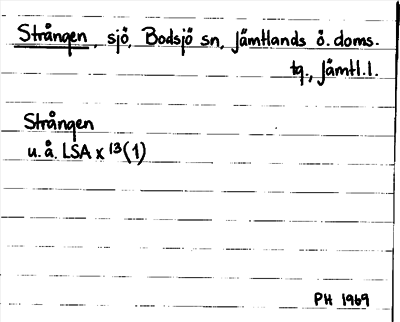 Strången, sjö, Bodsjö sn, Jämtlands ö. doms.
tg., Jämtl.l.
Strången
u.å. LSA x 13(1)
PH 1969